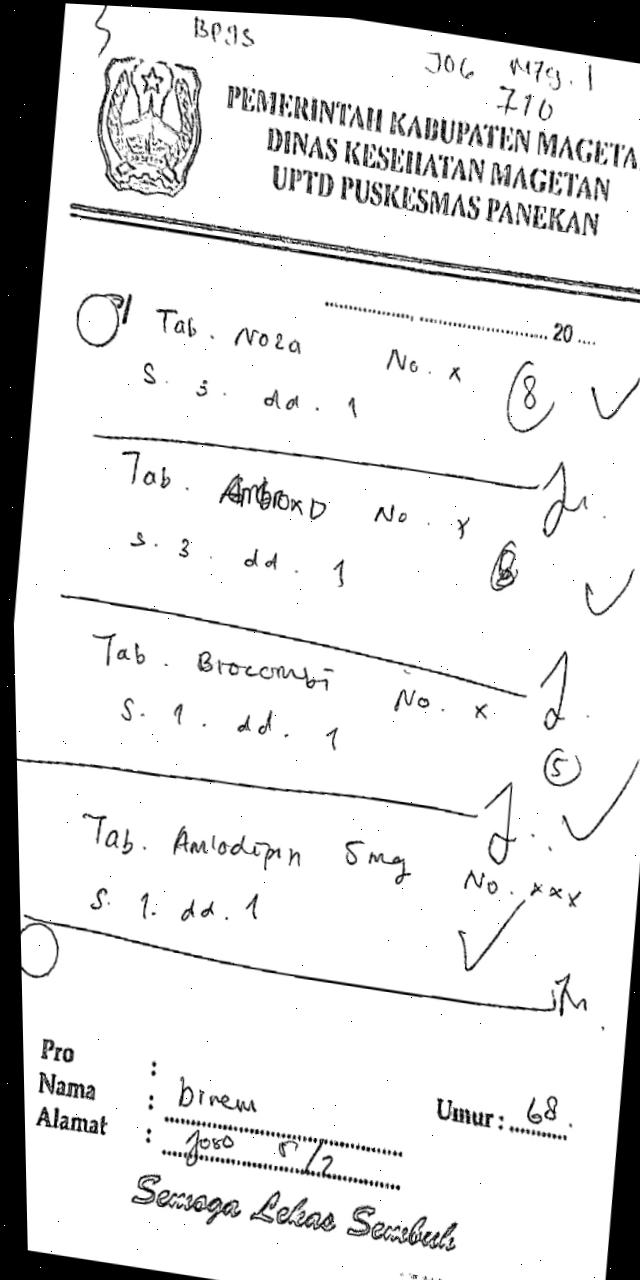 Bpjs
J06 M79.1
710
PEMERINTAH KABUPATEN MAGETA
DINAS KESEHATAN MAGETAN
UPTD PUSKESMAS PANEKAN
20
Tab. Noza No. x 8
S. 3. dd. 1
Tab. AmbroxD No. x
S. 3. dd. 1
Tab. Brocombi No. x
S. 1. dd. 1
5
Tab. Amlodipin 5 mg No. xxx
S. 1. dd. 1
Pro :
Nama : birem Umur : 68
Alamat : Joso 5/2
Semoga Lekas Sembuh